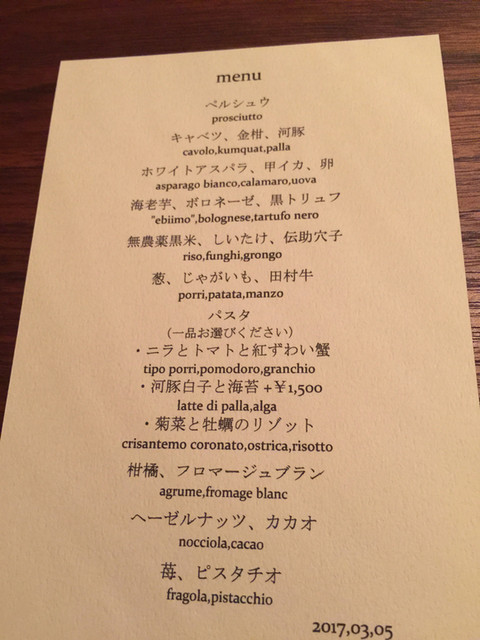 menu
ペルシュウ
prosciutto
キャベツ、金柑、河豚
cavolo,kumquat,palla
ホワイトアスパラ、甲イカ、卵
asparago bianco,calamaro,uova
海老芋、ボロネーゼ、黒トリュフ
"ebiimo",bolognese,tartufo nero
無農薬黒米、しいたけ、伝助穴子
riso,funghi,grongo
葱、じゃがいも、田村牛
porri,patata,manzo
パスタ
（一品お選びください）
・ニラとトマトと紅ずわい蟹
tipo porri,pomodoro,granchio
・河豚白子と海苔 +￥1,500
latte di palla,alga
・菊菜と牡蠣のリゾット
crisantemo coronato,ostrica,risotto
柑橘、フロマージュブラン
agrume,fromage blanc
ヘーゼルナッツ、カカオ
nocciola,cacao
苺、ピスタチオ
fragola,pistacchio
2017,03,05